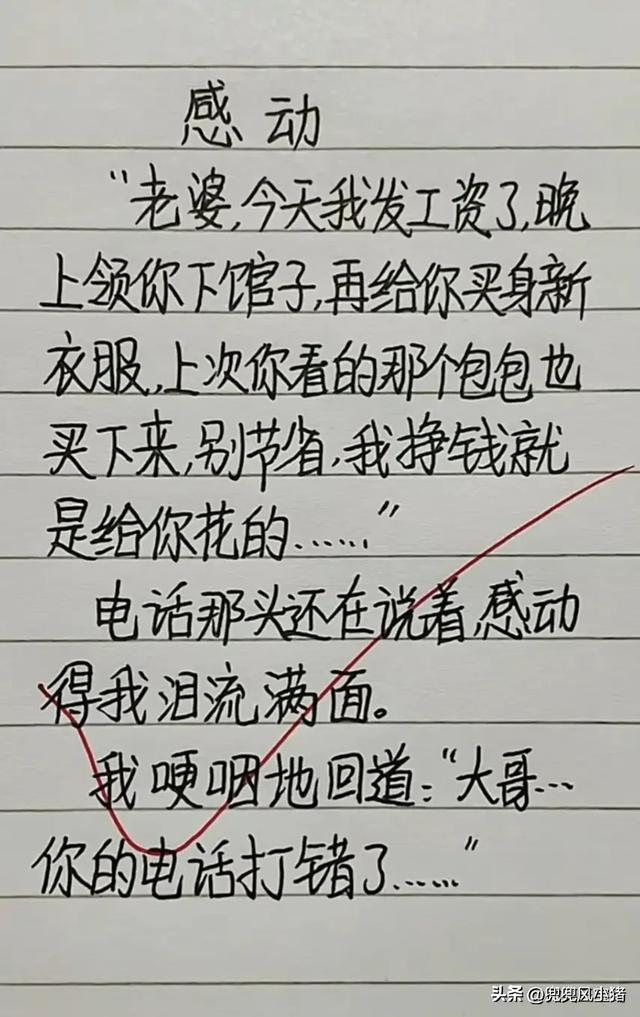 感动
“老婆,今天我发工资了,晚
上领你下馆子,再给你买身新
衣服,上次你看的那个包包也
买下来,别节省,我挣钱就
是给你花的......”
电话那头还在说着,感动
得我泪流满面。
我哽咽地回道:“大哥...
你的电话打错了......”
头条 @兜兜风小猪